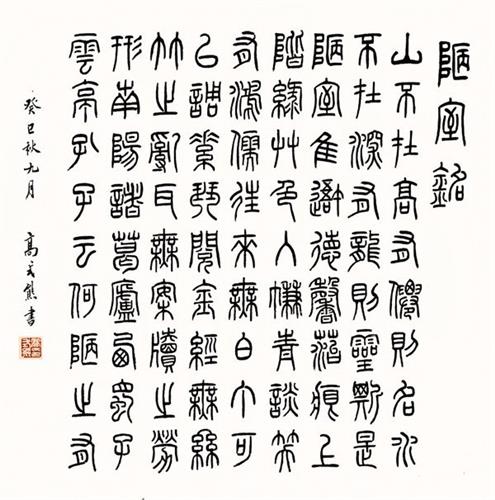 陋室銘
山不在高有僊則名水
不在深有龍則靈斯是
陋室隹吾德馨苔痕上
階綠艸色入簾青談笑
有鴻儒往來無白丁可
以調素琴閱金經無絲
竹之亂耳無案牘之勞
形南陽諸葛廬西蜀子
雲亭孔子云何陋之有
癸巳秋九月 高式熊書